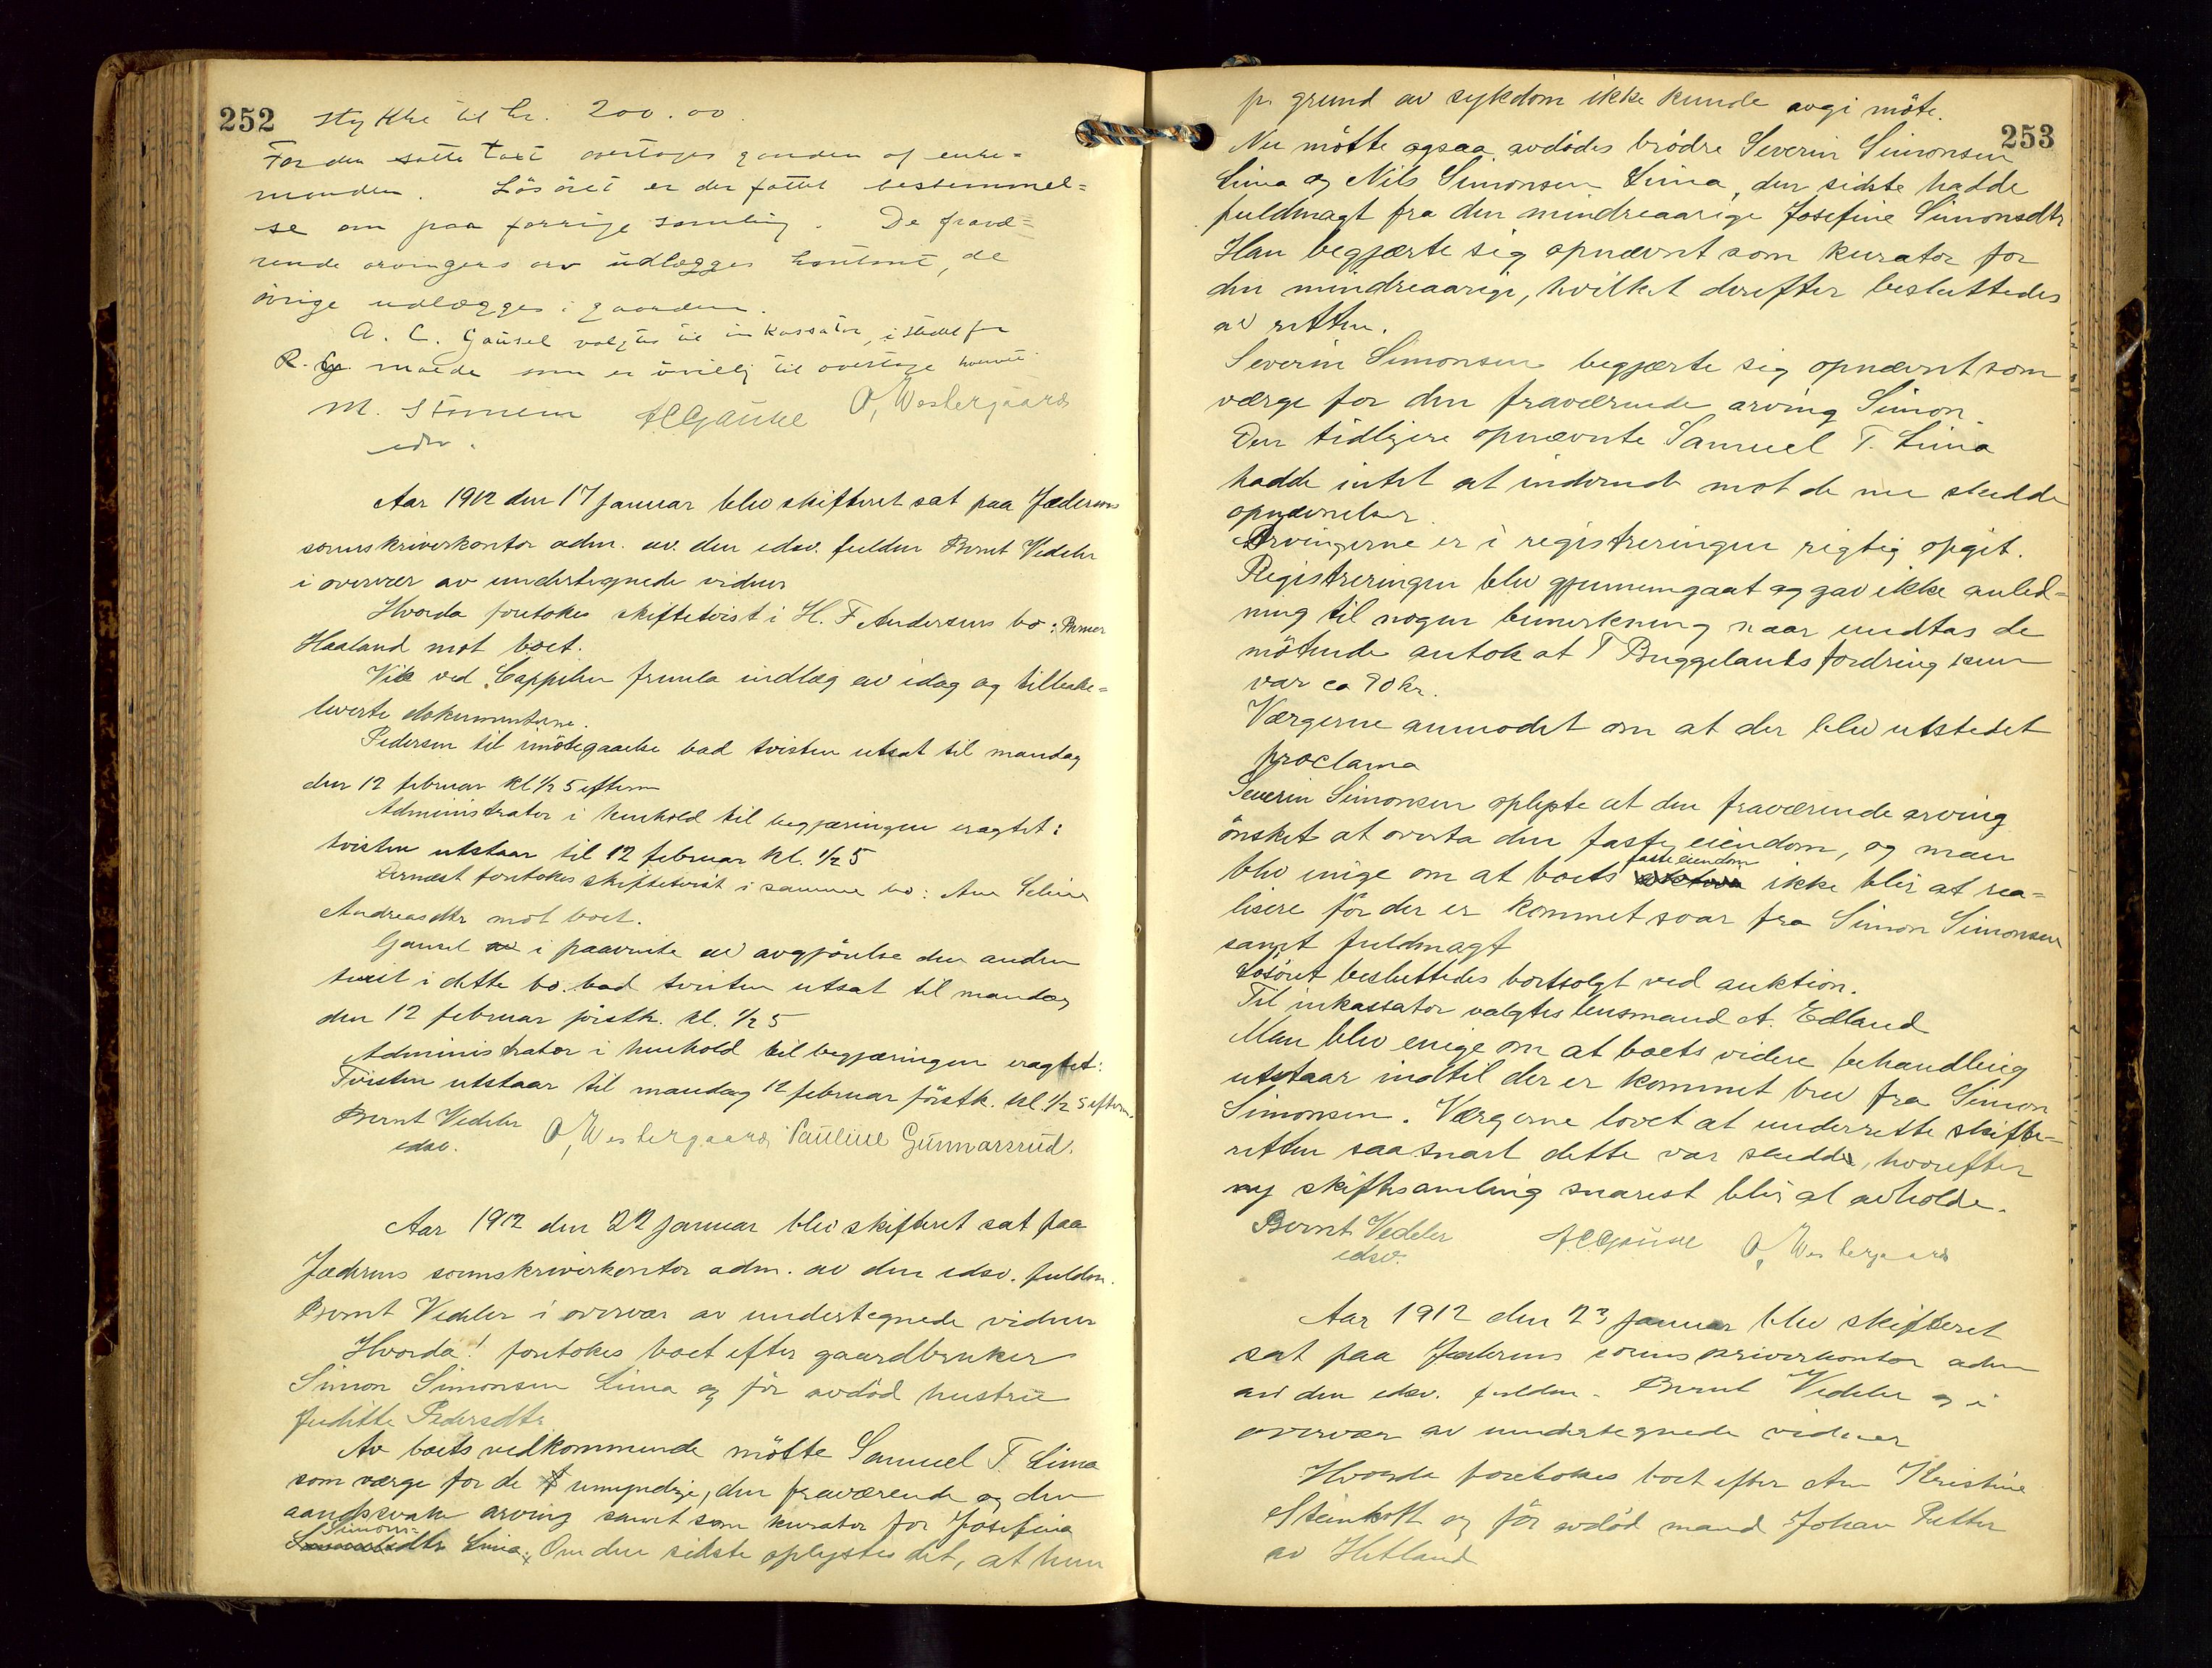 252
stykke til kr. 200.00.
For den satte taxt overtages gaarden af enke=
manden. Lösöret er der fattet bestemmel=
se om paa forrige samling. De fravæ=
rende arvingers arv udlægges kontant, de
övrige udlægges i gaarden.
A. C. Gausel valgtes til inkassator, i stedet for
R. G. Malde som er uvillig til overtage hvervet.
M. Stumein ACGausel O, Westergaard
edsv.
Aar 1912 den 17 januar blev skifteret sat paa Jæderens
sorenskriverkontor adm. av den edsv. fuldm Bernt Vedeler
i overvær av undertegnede vidner
Hvorda foretokes skiftetvist i H. F Andersens bo: Berner
Haaland mot boet.
Vik ved Cappelen fremla indlæg av idag og tilbake=
leverte dokumenterne.
Pedersen til imötegaaelse bad tvisten utsat til mandag
den 12 februar kl 1/2 5 efterm
Administrator i henhold til begjæringen eragtet:
tvisten utstaar til 12 februar kl. 1/2 5
Dernæst foretokes skiftetvist i samme bo: Ane Seline
Andreasdtr mot boet.
Gausel i paavente av avgjörelse den anden
tvist i dette bo. bad tvisten utsat til mandag
den 12 februar förstk. kl. 1/2 5
Administrator i henhold til begjæringen eragtet:
Tvisten utstaar til mandag 12 februar förstk. kl 1/2 5 efterm.
Bernt Vedeler O, Westergaard Pauline Gunnarsrud.
edsv.
Aar 1912 den 22 januar blev skifteret sat paa
Jæderens sorenskriverkontor adm. av den edsv. fuldm.
Bernt Vedeler i overvær av undertegnede vidner
Hvorda! foretokes boet efter gaardbruker
Simon Simonsen Lima og för avdöd hustru
Juditte Pedersdtr
Av boets vedkommende mötte Samuel T. Lima
som værge for de umyndige, den fraværende og den
aandssvake arving samt som kurator for Josefina
Simons-
dtr Lima. Om den sidste oplystes det, at hun
253
pr. grund av sykdom ikke kunde avgi möte.
Nu mötte ogsaa avdödes brödre Severin Simonsen
Lima og Nils Simonsen Lima, den sidste hadde
fuldmagt fra den mindreaarige Josefine Simonsdtr
Han begjærte sig opnævnt som kurator for
den mindreaarige, hvilket derefter besluttedes
av retten.
Severin Simonsen begjærte sig opnævnt som
værge for den fraværende arving Simon.
Den tidligere opnævnte Samuel T. Lima
hadde intet at indvende mot de nu skedde
opnævnelser.
Arvingerne er i registreringen rigtig opgit.
Registreringen blev gjennemgaat og gav ikke anled-
ning til nogen bemerkning naar undtas de
mötende antok at T Buggelands fordring kun
var ca 90 kr.
Værgerne anmodet om at der blev utstedet
proclama
Severin Simonsen oplyste at den fraværende arving
önsket at overta den faste eiendom, og man
faste eiendom
blev enige om at boets ikke blir at rea-
lisere för der er kommet svar fra Simon Simonsen
samt fuldmagt
Lösöret besluttedes bortsolgt ved auktion.
Til inkassator valgtes lensmand A. Edland
Man blev enige om at boets videre behandling
utstaar indtil der er kommet brev fra Simon
Simonsen. Værgerne lovet at underrette skifte-
retten saasnart dette var skedd, hvorefter
ny skiftesamling snarest blir at avholde.
Bernt Vedeler ACGausel O, Westergaard
edsv.
Aar 1912 den 23 januar blev skifteret
sat paa Jæderens sorenskriverkontor adm
av den edsv. fuldm. Bernt Vedeler og i
overvær av undertegnede vidner
Hvorda foretokes boet efter Ane Kristine
Steinkopf og för avdöd mand Johan Petter
av Hetland